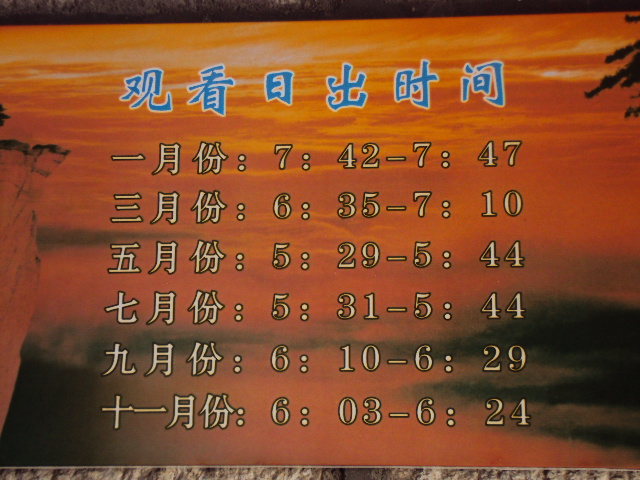 观看日出时间
一月份：7：42-7：47
三月份：6：35-7：10
五月份：5：29-5：44
七月份：5：31-5：44
九月份：6：10-6：29
十一月份：6：03-6：24